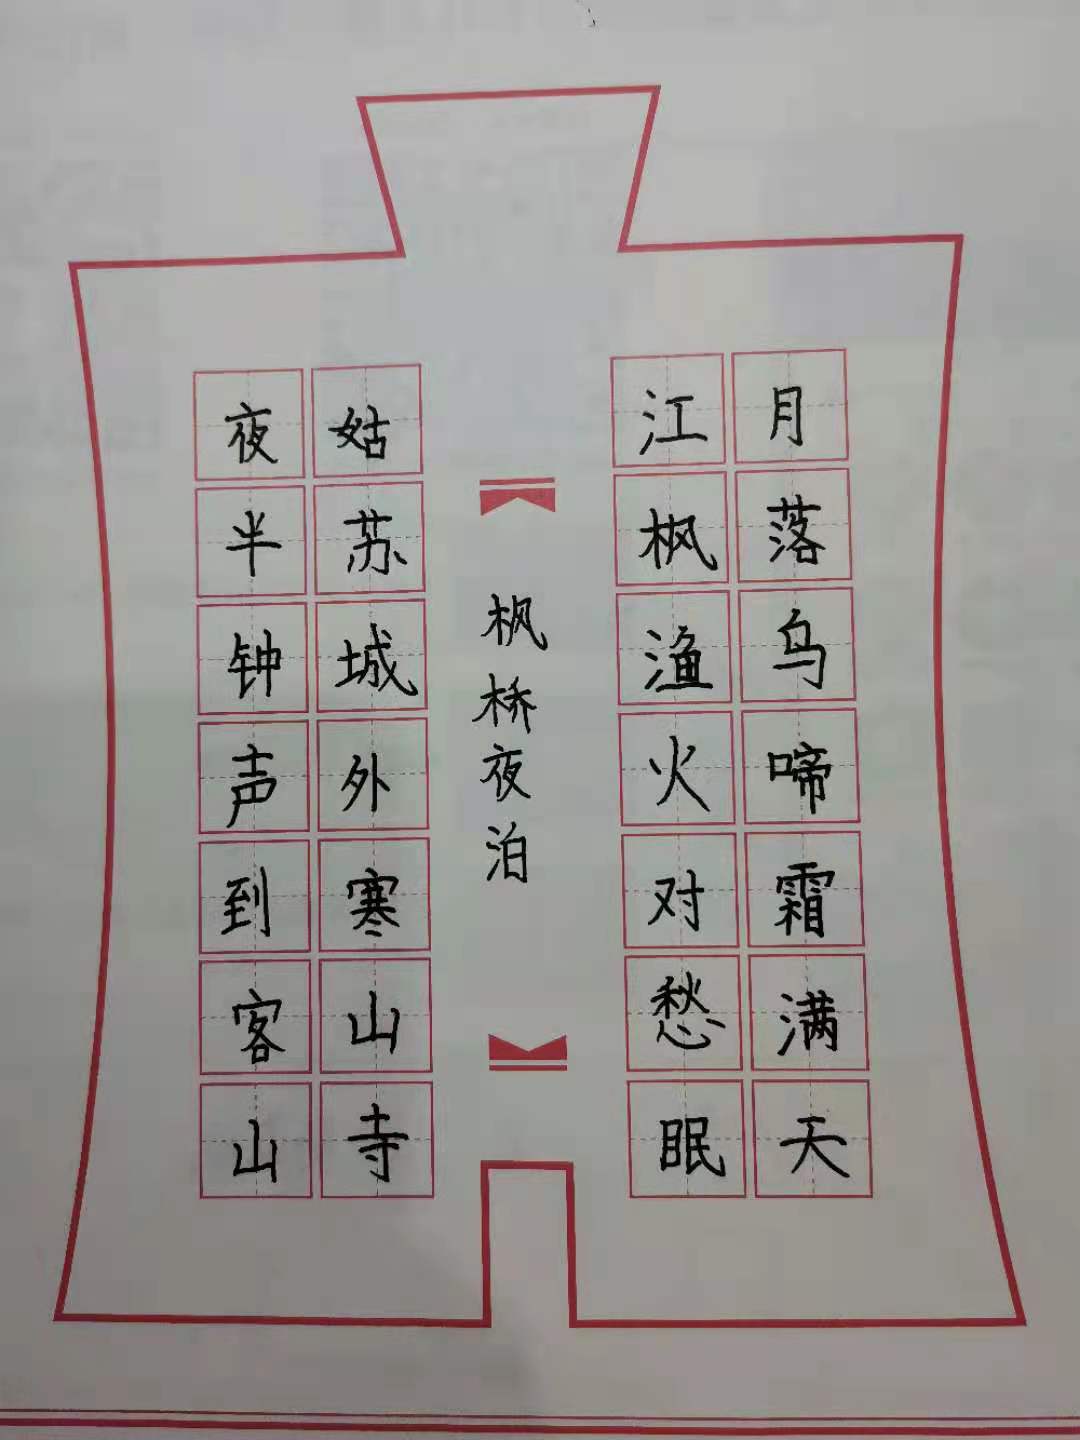 月落乌啼霜满天
江枫渔火对愁眠
枫桥夜泊
姑苏城外寒山寺
夜半钟声到客山